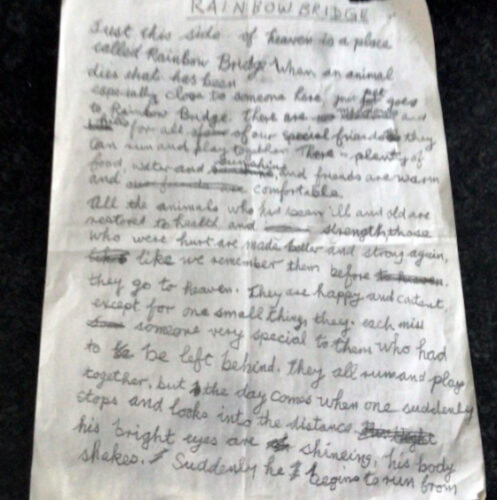 RAINBOW BRIDGE
Just this side of heaven is a place
called Rainbow Bridge. When an animal
dies that has been
especially close to someone here, pet goes
to Rainbow Bridge. There are meadows and
hills for all of our special friends so they
can run and play together. There is plenty of
food, water and sunshine, and friends are warm
and comfortable.
All the animals who had been ill and old are
restored to health and strength, those
who were hurt are made better and strong again,
like we remember them before to heaven.
they go to heaven. They are happy and content,
except for one small thing, they. each miss
someone very special to them who had
to be left behind. They all run and play
together, but the day comes when one suddenly
stops and looks into the distance.
his bright eyes are shineing, his body
shakes. Suddenly he begins to run from